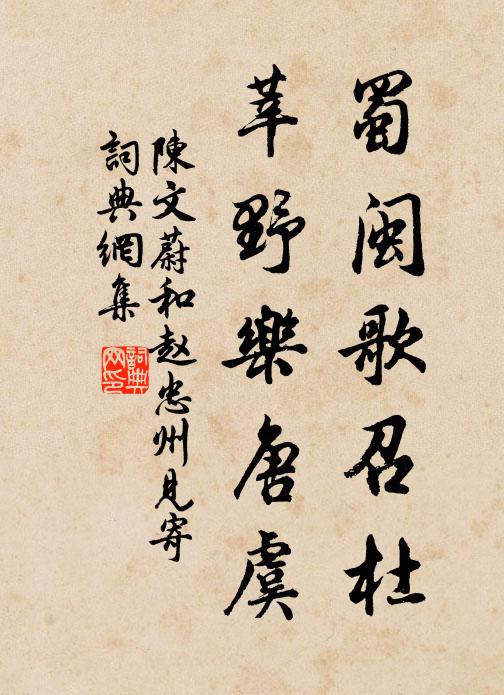 蜀闽歌召杜
莘野樂唐虞
陳文蔚和赵忠州見寄
詞典網集
詞典网印